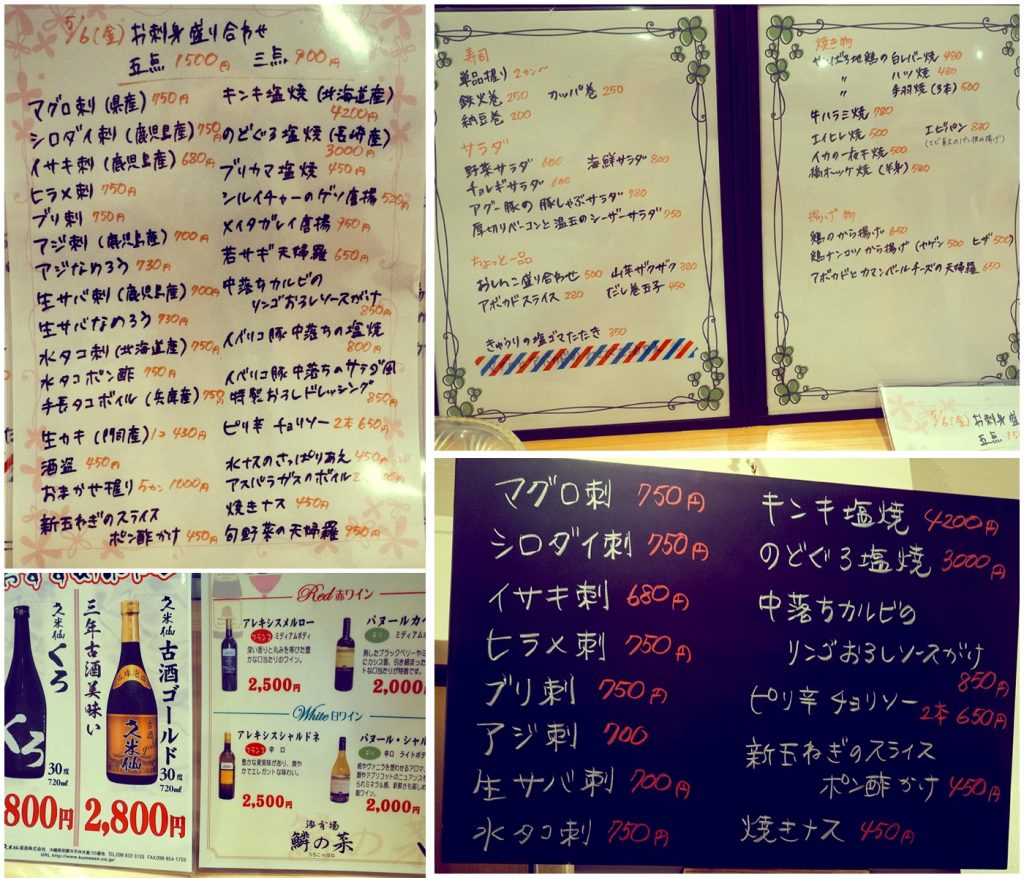 5/6(金) お刺身盛り合わせ
五点 1500円 三点 900円
マグロ刺(県産) 750円
シロダイ刺(鹿児島産) 750円
イサキ刺(鹿児島産) 680円
ヒラメ刺 750円
ブリ刺 750円
アジ刺(鹿児島産) 700円
アジなめろう 730円
生サバ刺(鹿児島産) 700円
生サバなめろう 730円
水タコ刺(北海道産) 750円
水タコポン酢 750円
手長タコボイル(兵庫産) 750円
生カキ 1コ 430円
酒盗 450円
おまかせ握り 5カン 1000円
新玉ねぎのスライス
ポン酢かけ 450円
キンキ塩焼(北海道産)
4200円
のどぐろ塩焼(長崎産)
3000円
ブリカマ塩焼 450円
シルイチャーのゲソ唐揚 520円
メイタガレイ唐揚 750円
若サギ天婦羅 650円
中落ちカルビの
リンゴおろしソースがけ
850円
イベリコ豚中落ちの塩焼
800円
イベリコ豚中落ちのサラダ風
特製おろしドレッシング
850円
ピリ辛チョリソー 2本 650円
水ナスのさっぱりあえ 450円
アスパラガスのボイル
焼きナス 450円
旬野菜の天婦羅 450円
寿司
単品握り 2カン〜
鉄火巻 250 カッパ巻 250
納豆巻 200
サラダ
野菜サラダ 600 海鮮サラダ 800
チョレギサラダ 600
アグー豚の豚しゃぶサラダ 930
厚切りベーコンと温玉のシーザーサラダ 750
ちょっと一品
おしんこ盛り合わせ 500 山芋ザクザク 380
アボカドスライス 280 だし巻玉子 450
きゅうりの塩ゴマたたき 350
焼き物
やんばる地鶏の白レバー焼 480
〃 ハツ焼 480
〃 手羽焼(3本) 500
牛ハラミ焼 780
エイヒレ焼 500 エビパン 830
イカの一夜干焼 500
縞ホッケ焼(半身) 580
揚げ物
鶏のから揚げ 650
鶏ナンコツから揚げ(ヤゲン 500 ヒザ 500)
アボカドとカマンベールチーズの天婦羅 650
5/6(金) お刺身盛
五点
久米仙 くろ
30度
720ml
800円
三年古酒美味い
久米仙 古酒ゴールド
古酒
久米仙
30度
720ml
2,800円
Red 赤ワイン
アレキシスメルロー
フランス ミディアムボディ
深い香りと丸みを帯びた豊かな口当たりのワイン。
2,500円
パヌールカベ
チリ ミディアムボ
2,000
White 白ワイン
アレキシスシャルドネ
フランス 辛口
豊かな果実味があり、爽やかでエレガントな味わい。
2,500円
パヌール・シャル
チリ 辛口 ライトボデ
2,000
海音場
鱗の菜
うろこのはな
マグロ刺 750円
シロダイ刺 750円
イサキ刺 680円
ヒラメ刺 750円
ブリ刺 750円
アジ刺 700
生サバ刺 700円
水タコ刺 750円
キンキ塩焼 4200円
のどぐろ塩焼 3000円
中落ちカルビの
リンゴおろしソースがけ
850円
ピリ辛チョリソー
2本 650円
新玉ねぎのスライス
ポン酢かけ 450円
焼きナス 450円